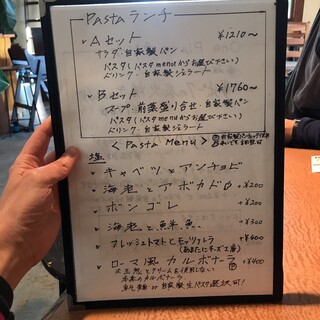 Pasta ランチ
・Aセット ¥1210〜
サラダ・自家製パン
パスタ(パスタmenuからお選び下さい)
ドリンク・自家製ジェラート
・Bセット ¥1760〜
スープ・前菜盛り合せ・自家製パン
パスタ(パスタmenuからお選び下さい)
ドリンク・自家製ジェラート
< Pasta Menu >
塩
・キャベツとアンチョビ
・海老とアボカド +¥200
・ボンゴレ +¥200
・海老と鮮魚 +¥300
・フレッシュトマトとモッツァレラ +¥400
・ローマ風カルボナーラ +¥400
本来のカルボナーラ